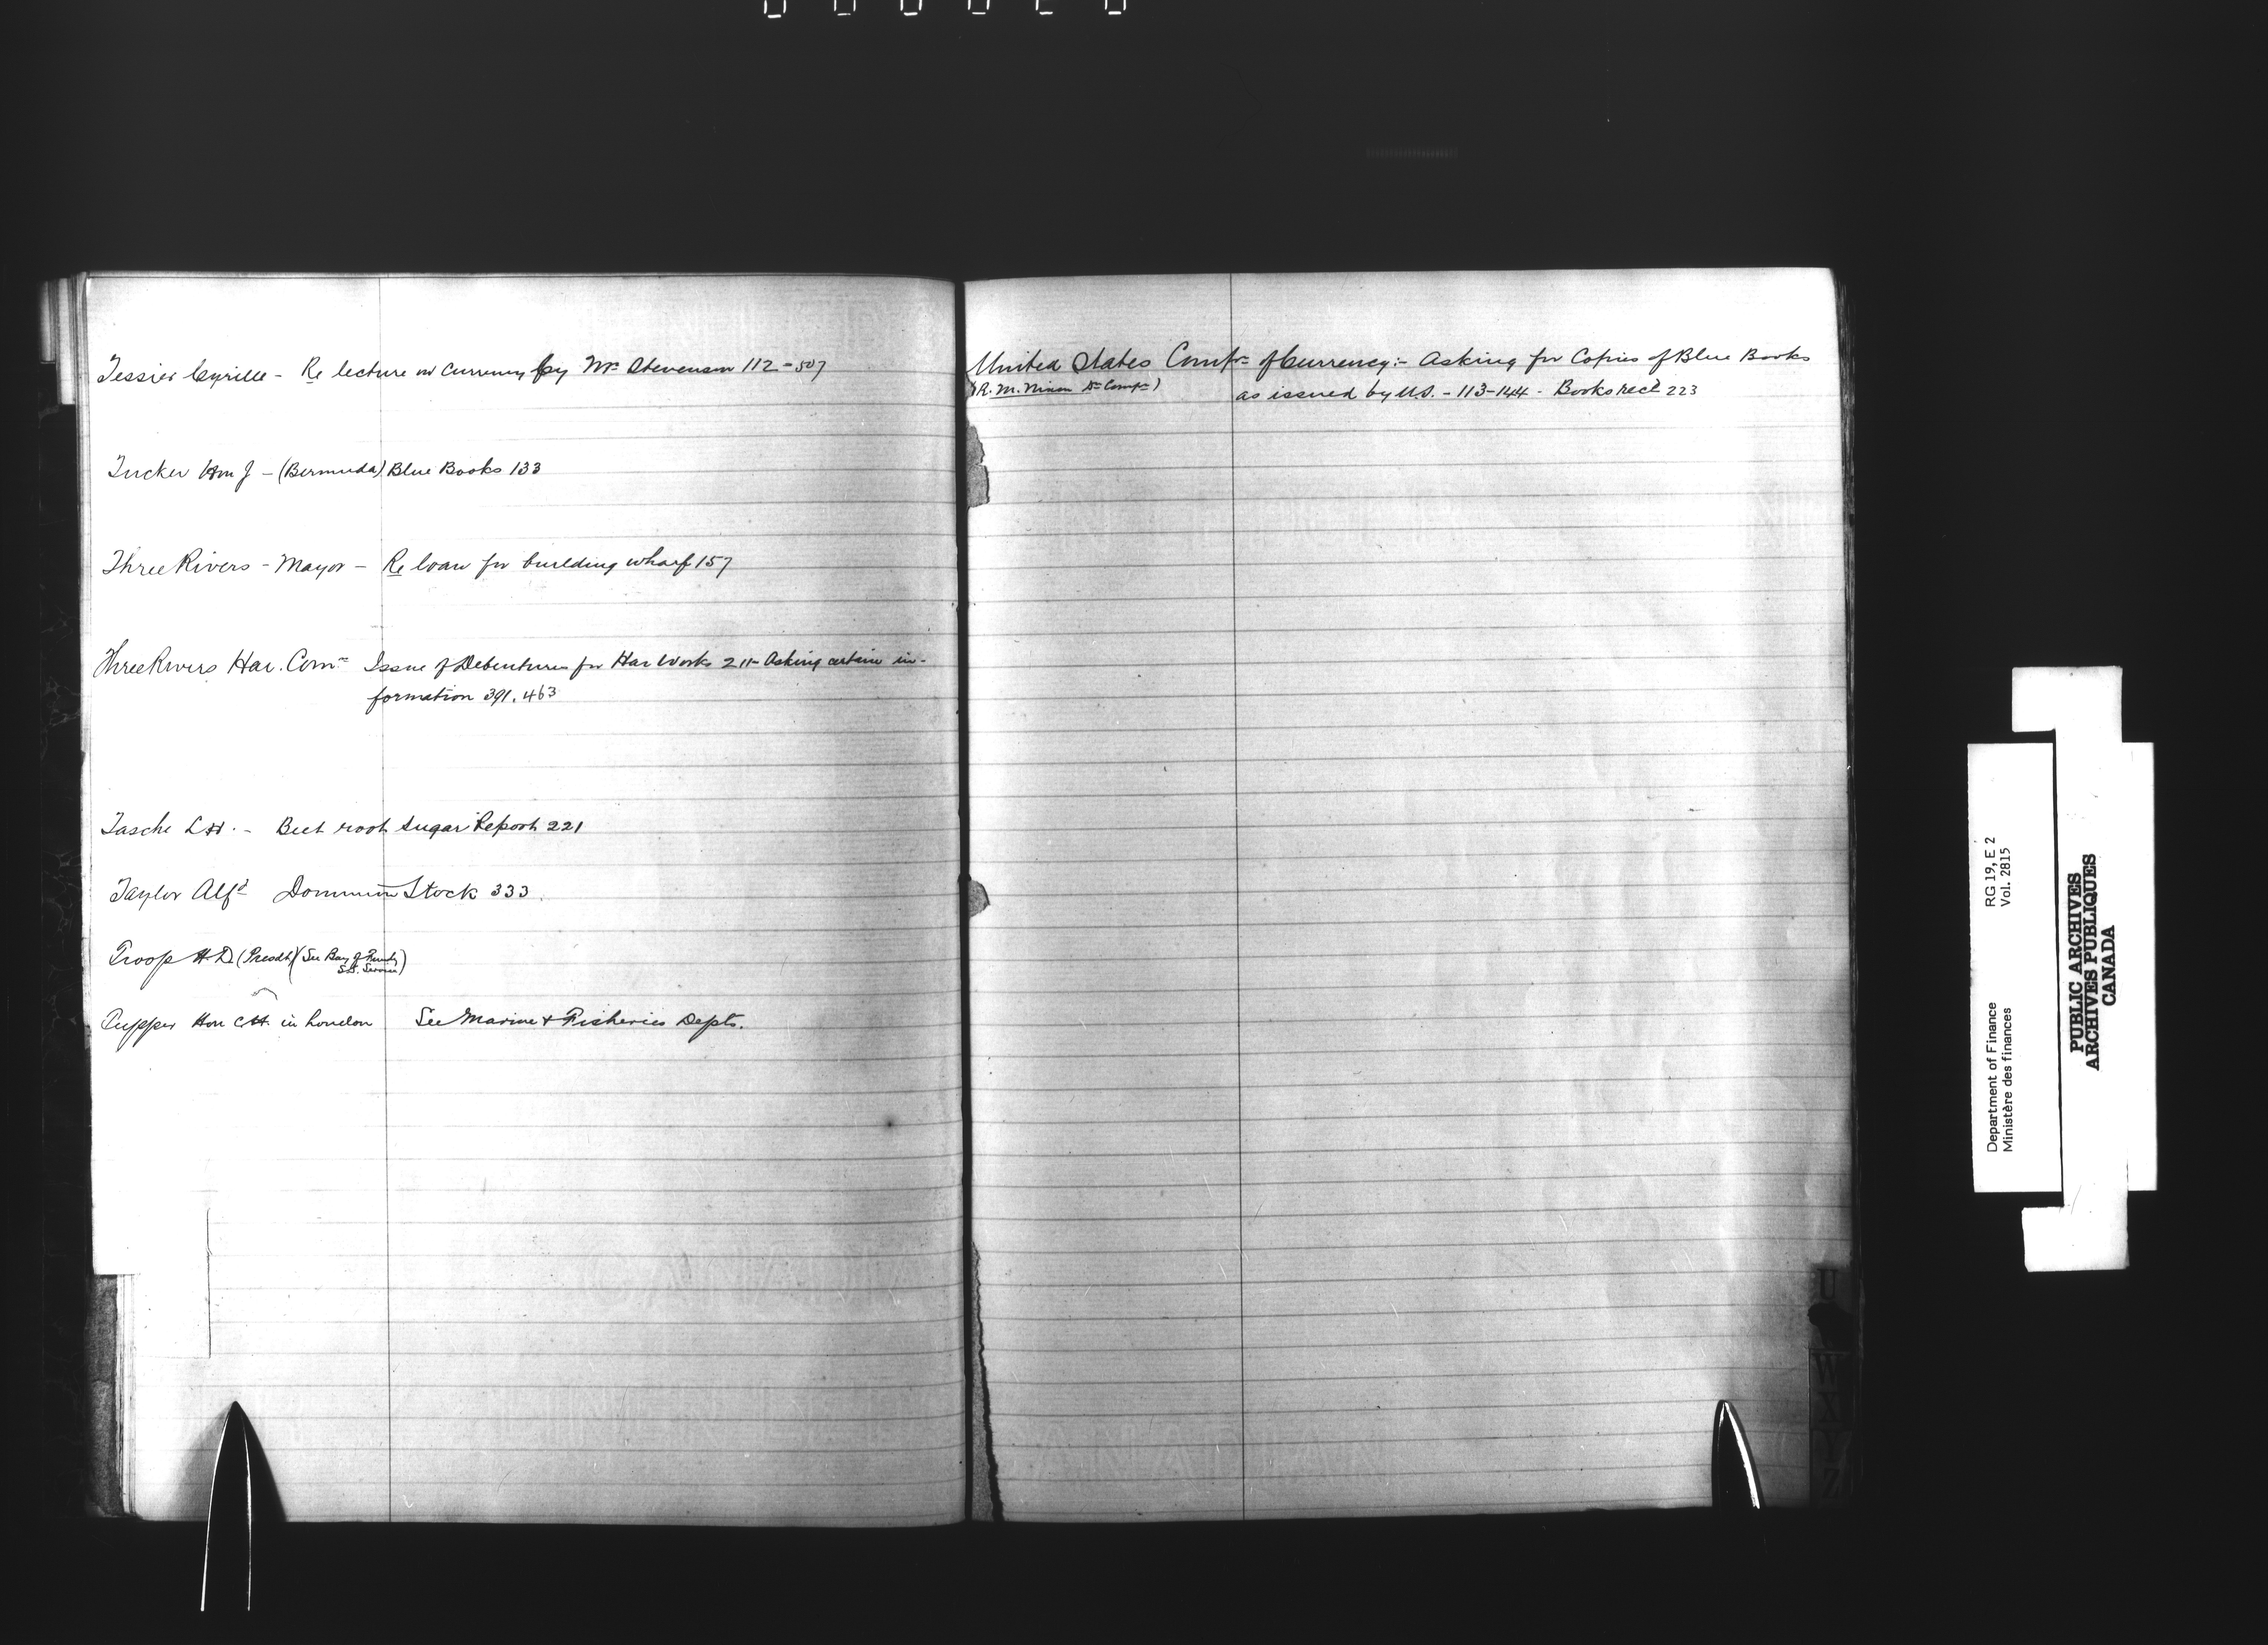 Tessier Cyrille - Re lecture on Currency by Mr Stevenson 112-507
Tucker Hon J - (Bermuda) Blue Books 133
Three Rivers - Mayor - Re loan for building wharf 157
Three Rivers Har. Comrs Issue of Debentures for Har Works 211- Asking certain in-
formation 391. 463
Tasche L H. - Beet root sugar Report 221
Taylor Alfd Dominion Stock 333.
Troop H.D. (Presdt) (See Bay of Fundy
S.S. Service)
Tupper Hon C.H. in London See Marine & Fisheries Depts.
United States Compr of Currency:- Asking for Copies of Blue Books
(R. M. Nixon Dy Compr) as issued by U.S. - 113-144 - Books recd 223
U
W
X
Y
Z
Department of Finance RG 19, E 2
Ministère des finances Vol. 2815
PUBLIC ARCHIVES
ARCHIVES PUBLIQUES
CANADA